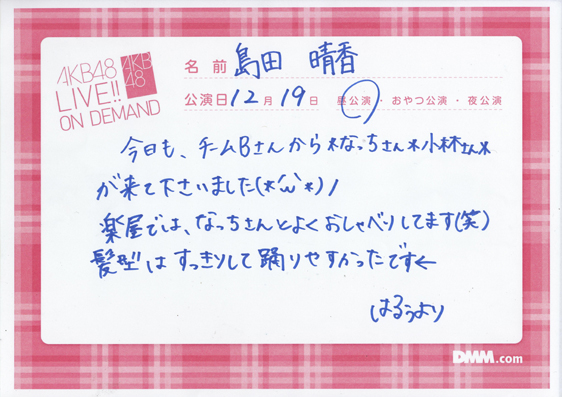 AKB48
LIVE!!
ON DEMAND
AKB
48
名前 島田 晴香
公演日 12月19日 昼公演・おやつ公演・夜公演
今日も、チームBさんから*なっちさん*小林さん*
が来て下さいました(*'ω'*)ノ
楽屋では、なっちさんとよくおしゃべりしてます(笑)
髪型はすっきりして踊りやすかったです←
はるぅより
DMM.com